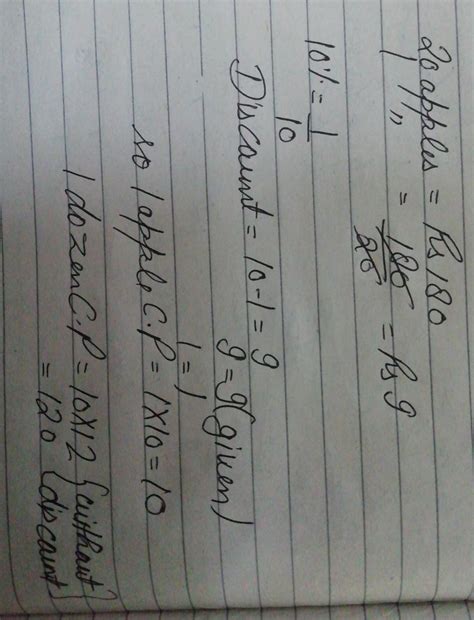 20 apples = Rs 180
1 " = 180/20 = Rs 9
10% = 1/10
Discount = 10-1 = 9
9 = 9 (given)
1 = 1
so 1 apple C.P = 1x10 = 10
1 dozen C.P = 10x12 {without
= 120 {discount}